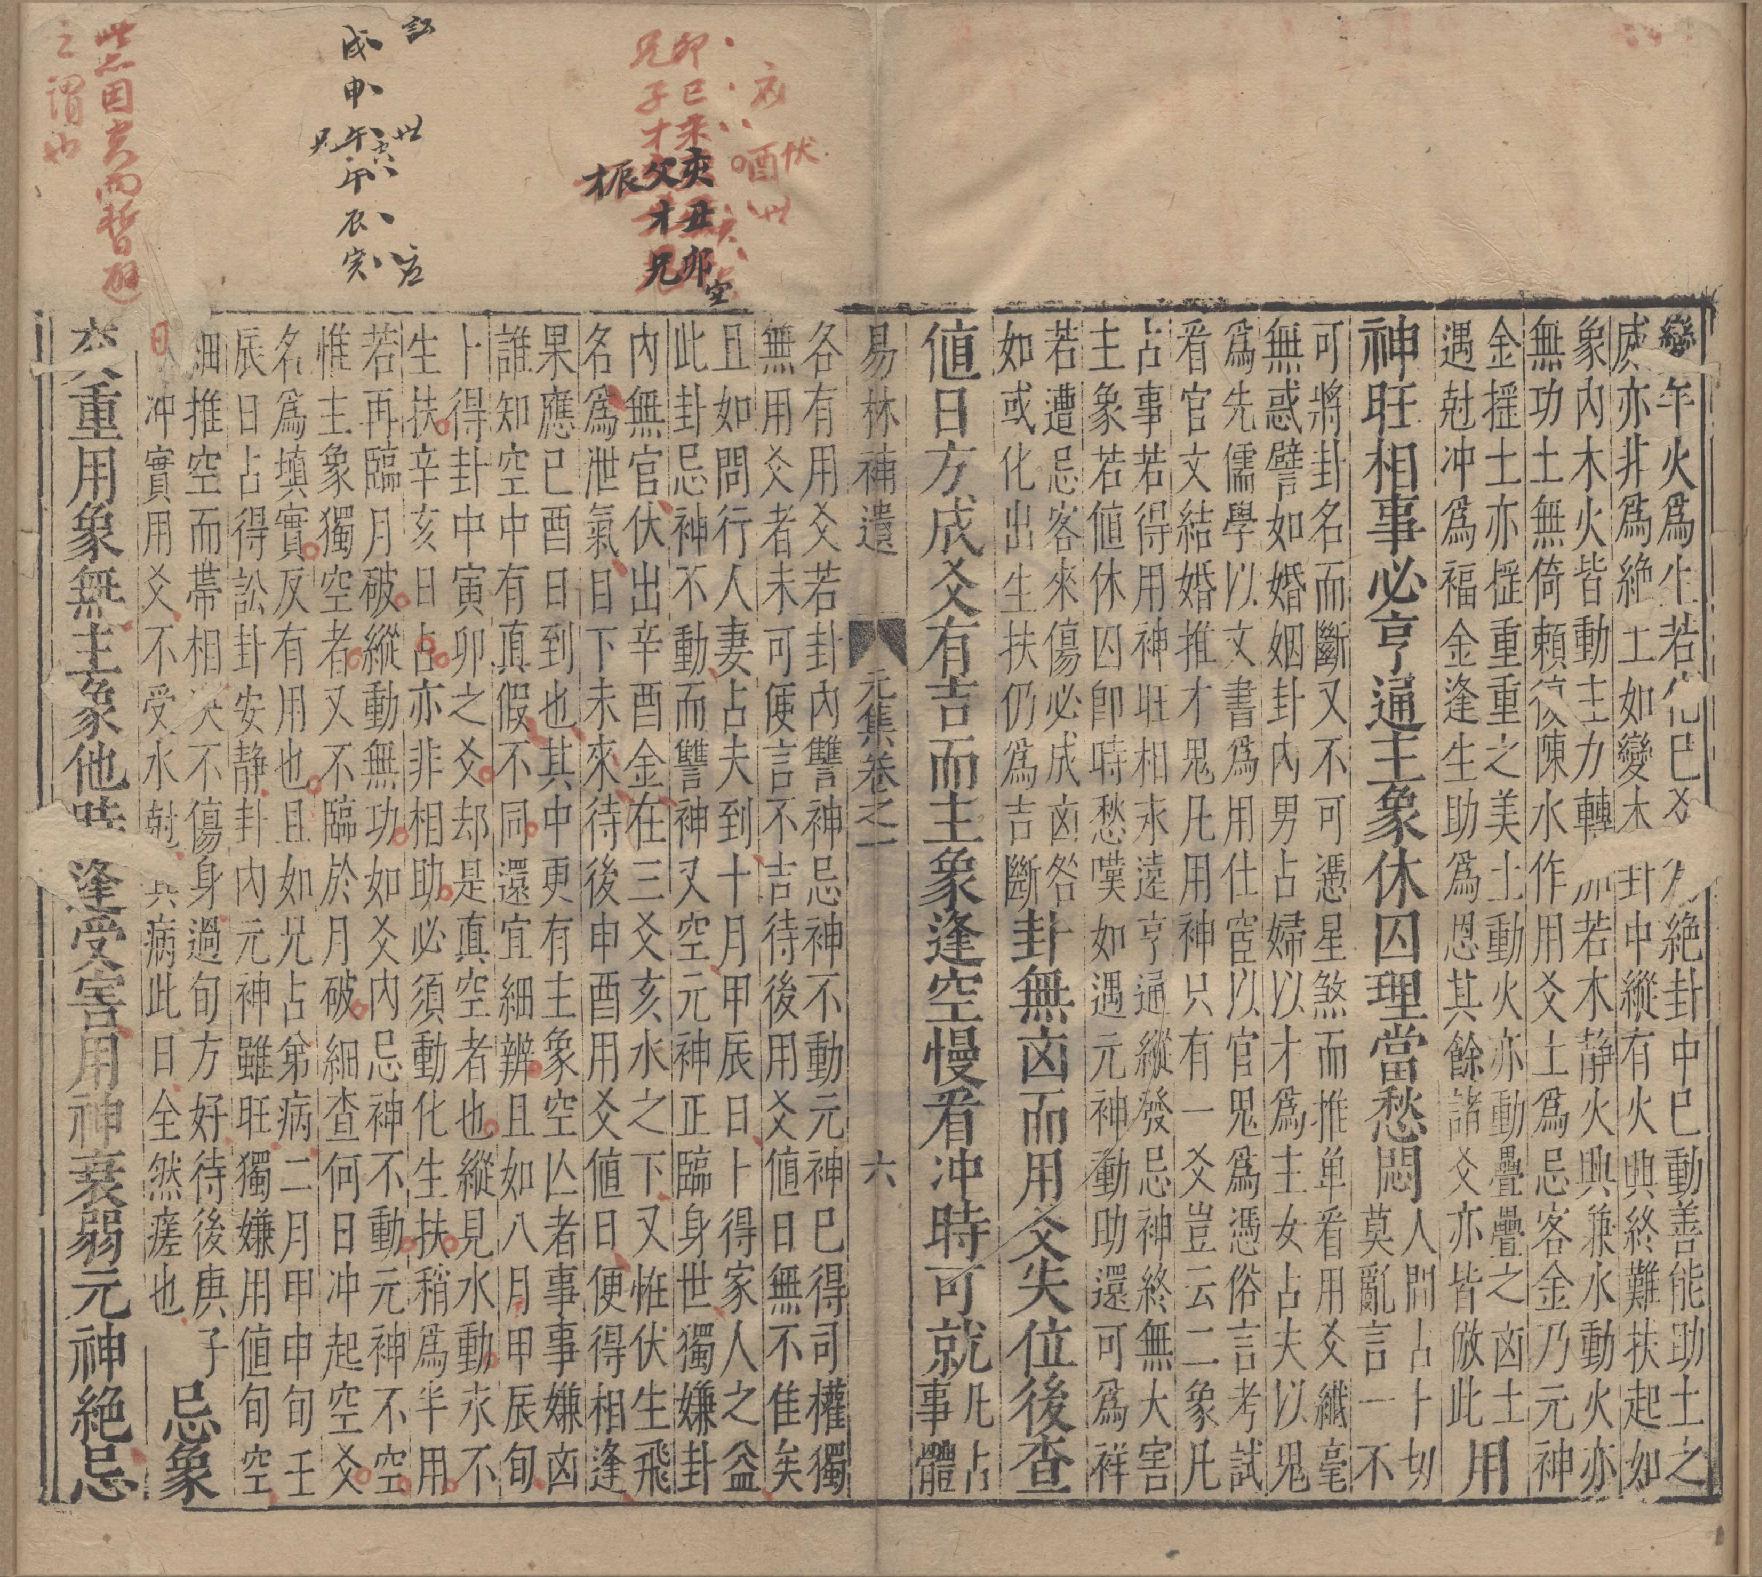 變午火爲生若化巳爻爲絶卦中巳動善能助土之
威亦非爲絶土如變木卦中縱有火興終難扶起如
象内木火皆動主力轉加若木静火興兼水動火亦
無功土無倚賴復陳水作用爻土爲忌客金乃元神
金摇土亦摇重重之美土動火亦動疊疊之凶土
遇尅冲爲福金逢生助爲恩其餘諸爻亦皆倣此
用
神旺相事必亨通主象休囚理當愁悶
人間占卜切
莫亂言一不
可將卦名而斷又不可憑星煞而推单看用爻纖毫
無惑譬如婚姻卦内男占婦以才爲主女占夫以鬼
爲先儒學以文書爲用仕宦以官鬼爲憑俗言考試
看官文結婚推才鬼凡用神只有一爻豈云二象凡
占事若得用神旺相永遠亨通縱發忌神終無大害
主象若値休囚即時愁嘆如遇元神動助還可爲祥
若遭忌客來傷必成凶咎
如或化出生扶仍爲吉斷
卦無凶而用爻失位後查
値日方成爻有吉而主象逢空慢看冲時可就
凡占
事體
易林補遺
元集卷之一
六
各有用爻若卦内讐神忌神不動元神巳得司權獨
無用爻者未可便言不吉待後用爻値日無不隹矣
且如問行人妻占夫到十月甲辰日卜得家人之益
此卦忌神不動而讐神又空元神正臨身世獨嫌卦
内無官伏出辛酉金在三爻亥水之下又恠伏生飛
名爲泄氣目下未來待後申酉用爻値日便得相逢
果應己酉日到也其中更有主象空亾者事事嫌凶
誰知空中有真假不同還宜細辨且如八月甲辰旬
卜得卦中寅卯之爻却是真空者也縱見水動永不
生扶辛亥日占亦非相助必須動化生扶稍爲半用
若再臨月破縱動無功如爻内忌神不動元神不空
惟主象獨空者又不臨於月破細查何日冲起空爻
名爲填實反有用也且如兄占弟病二月甲申旬壬
辰日占得訟卦安静卦内元神雖旺獨嫌用値旬空
細推空而帶相決不傷身過旬方好待後庚子
日冲實用爻不受水尅其病此日全然瘥也
忌象
交重用象無主象他時逢受害用神衰弱元神絶忌
之謂也